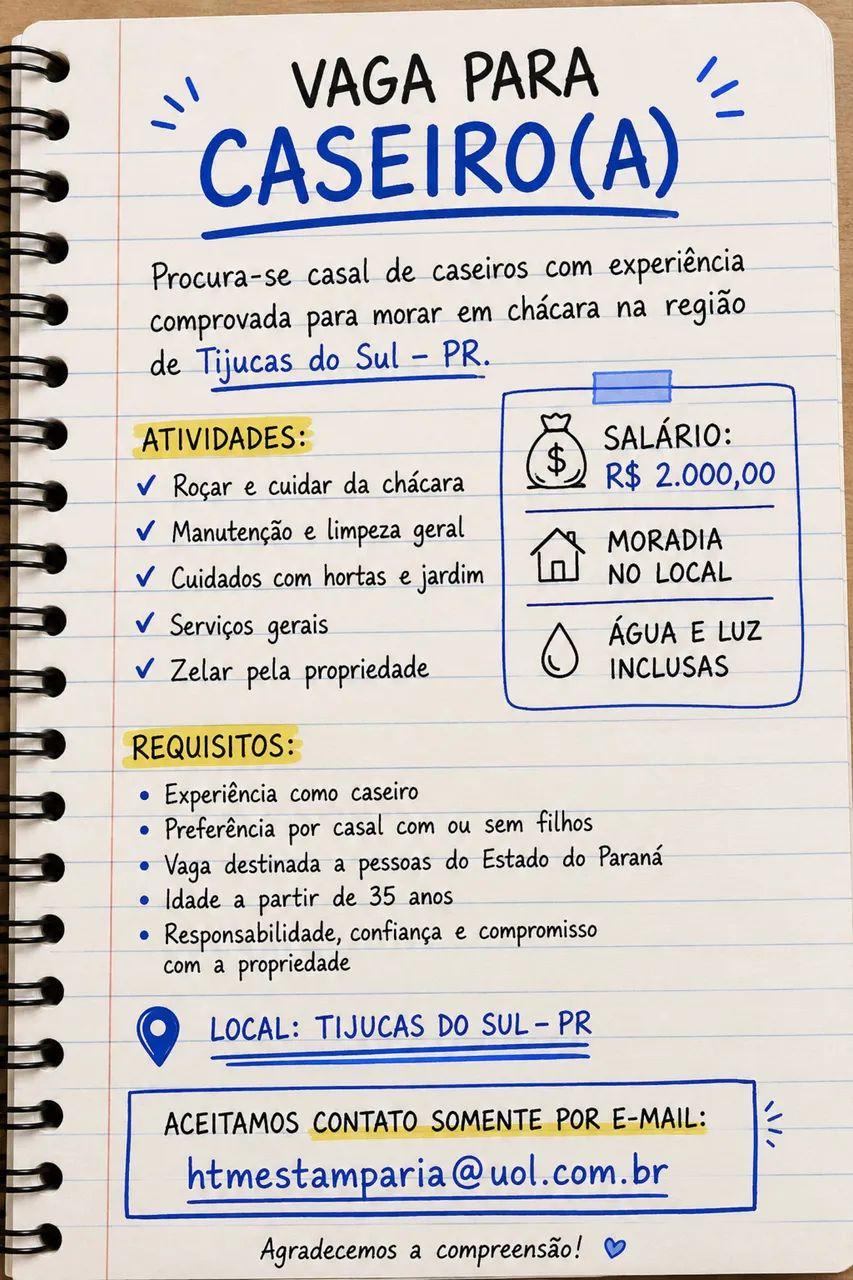 VAGA PARA
CASEIRO(A)
Procura-se casal de caseiros com experiência
comprovada para morar em chácara na região
de Tijucas do Sul – PR.
ATIVIDADES:
✓ Roçar e cuidar da chácara
✓ Manutenção e limpeza geral
✓ Cuidados com hortas e jardim
✓ Serviços gerais
✓ Zelar pela propriedade
$
SALÁRIO:
R$ 2.000,00
MORADIA
NO LOCAL
ÁGUA E LUZ
INCLUSAS
REQUISITOS:
• Experiência como caseiro
• Preferência por casal com ou sem filhos
• Vaga destinada a pessoas do Estado do Paraná
• Idade a partir de 35 anos
• Responsabilidade, confiança e compromisso
com a propriedade
LOCAL: TIJUCAS DO SUL – PR
ACEITAMOS CONTATO SOMENTE POR E-MAIL:
htmestamparia@uol.com.br
Agradecemos a compreensão!